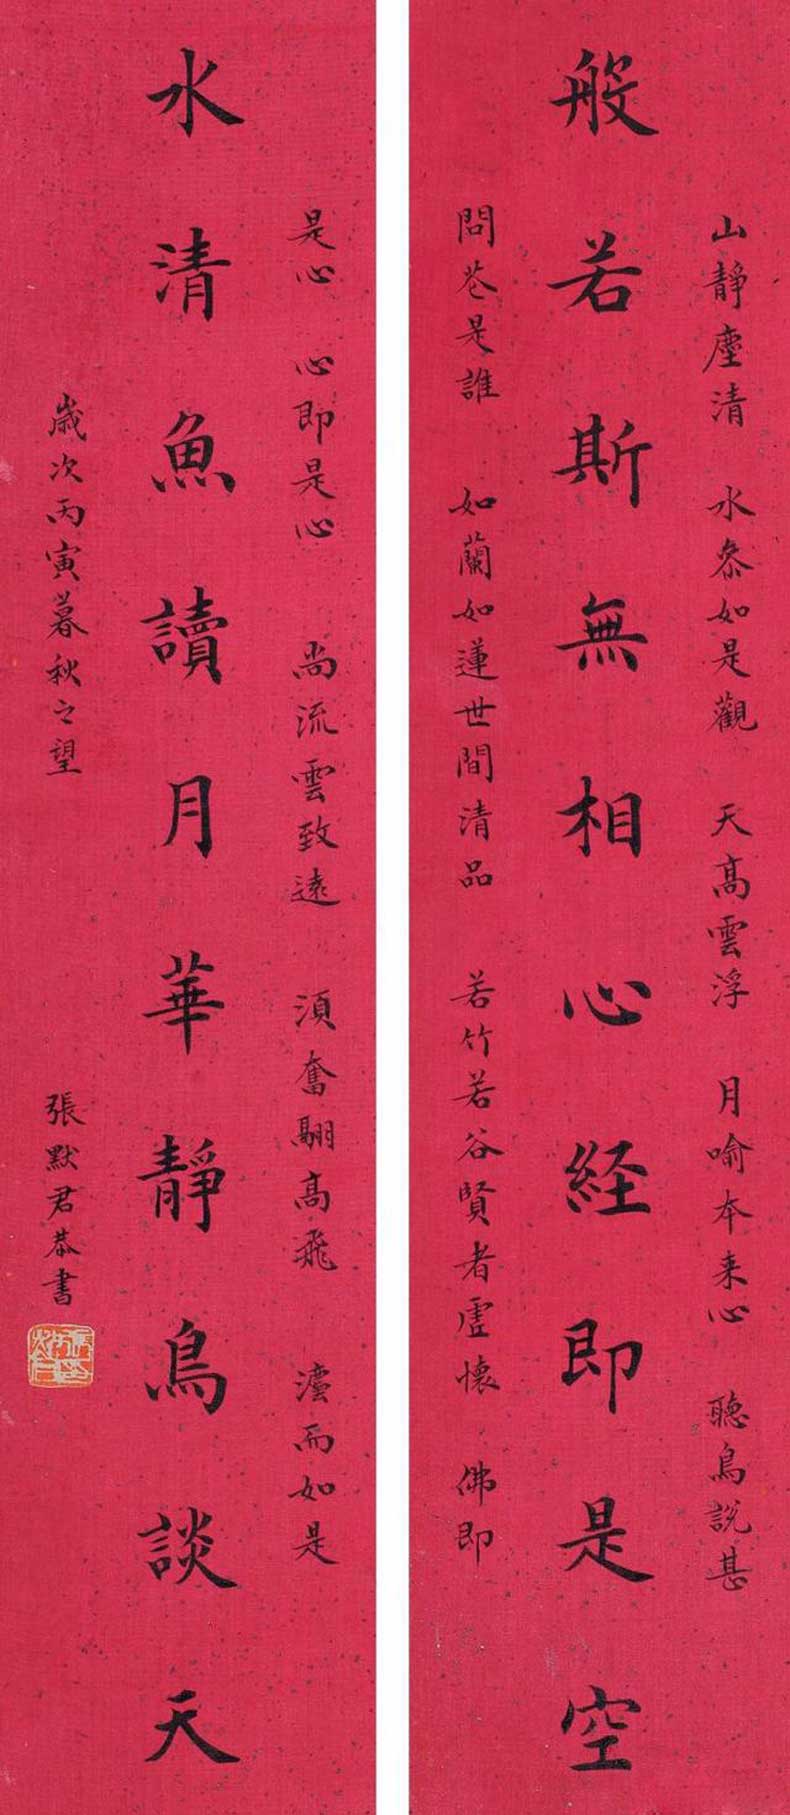 山靜塵清 水叅如是觀 天高雲浮 月喻本来心 聽鳥說甚
般若斯無相心経即是空
問花是誰 如蘭如蓮世間清品 若竹若谷賢者虛懷 佛即
是心 心即是心 尚流雲致遠 須奮翮高飛 澐而如是
水清魚讀月華靜鳥談天
歲次丙寅暮秋之望 張默君恭書